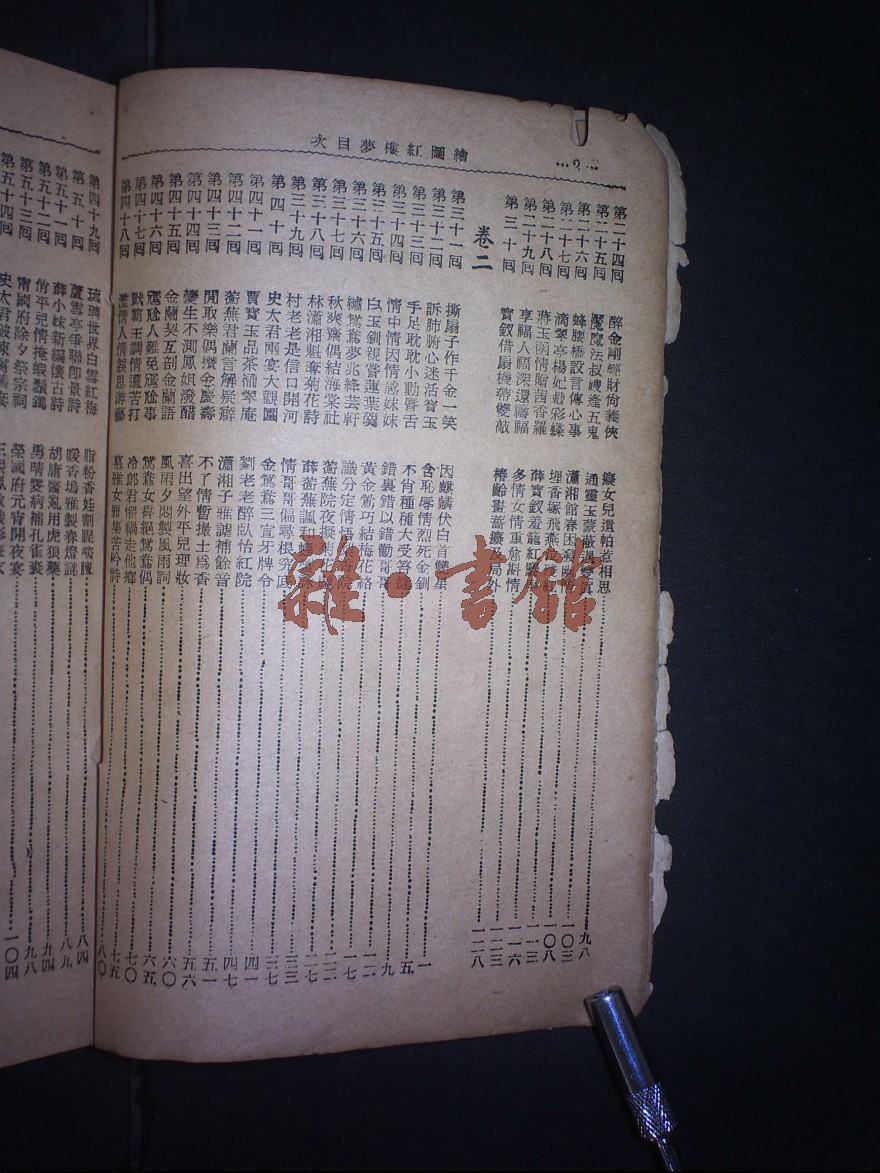 …2…
繪圖紅樓夢目次
第二十四回 醉金剛輕財尚義俠 癡女兒遺帕惹相思 九八
第二十五回 魘魔法叔嫂逢五鬼 通靈玉蒙蔽遇雙真 一〇三
第二十六回 蜂腰橋設言傳心事 瀟湘館春困發幽情 一〇八
第二十七回 滴翠亭楊妃戲彩蝶 埋香塚飛燕泣殘紅 一一三
第二十八回 蔣玉函情贈茜香羅 薛寶釵羞籠紅麝串 一一六
第二十九回 享福人福深還禱福 多情女情重愈斟情 一二三
第三十回 寶釵借扇機帶雙敲 椿齡畫薔癡及局外 一二八
卷二
第三十一回 撕扇子作千金一笑 因麒麟伏白首雙星 一
第三十二回 訴肺腑心迷活寶玉 含恥辱情烈死金釧 五
第三十三回 手足耽耽小動唇舌 不肖種種大受笞撻 九
第三十四回 情中情因情感妹妹 錯裏錯以錯勸哥哥 一二
第三十五回 白玉釧親嘗蓮葉羹 黃金鶯巧結梅花絡 一七
第三十六回 繡鴛鴦夢兆絳芸軒 識分定情悟梨香院
第三十七回 秋爽齋偶結海棠社 蘅蕪院夜擬菊花題 二七
第三十八回 林瀟湘魁奪菊花詩 薛蘅蕪諷和螃蟹詠
第三十九回 村老老是信口開河 情哥哥偏尋根究底
第四十回 史太君兩宴大觀園 金鴛鴦三宣牙牌令
第四十一回 賈寶玉品茶櫳翠庵 劉老老醉臥怡紅院 四一
第四十二回 蘅蕪君蘭言解疑癖 瀟湘子雅謔補餘音 四七
第四十三回 閒取樂偶攢金慶壽 不了情暫撮土為香 五一
第四十四回 變生不測鳳姐潑醋 喜出望外平兒理妝 五六
第四十五回 金蘭契互剖金蘭語 風雨夕悶製風雨詞 六〇
第四十六回 尷尬人難免尷尬事 鴛鴦女誓絕鴛鴦偶 六五
第四十七回 獃霸王調情遭苦打 冷郎君懼禍走他鄉 七〇
第四十八回 濫情人情誤思游藝 慕雅女雅集苦吟詩 七五
八〇
第四十九回 琉璃世界白雪紅梅 脂粉香娃割腥啖膻 八四
第五十回 蘆雪亭爭聯即景詩 暖香塢雅製春燈謎 八九
第五十一回 薛小妹新編懷古詩 胡庸醫亂用虎狼藥 九四
第五十二回 俏平兒情掩蝦鬚鐲 勇晴雯病補孔雀裘 九八
第五十三回 甯國府除夕祭宗祠 榮國府元宵開夜宴 一〇四
第五十四回 史太君破陳腐舊套
雜·書館